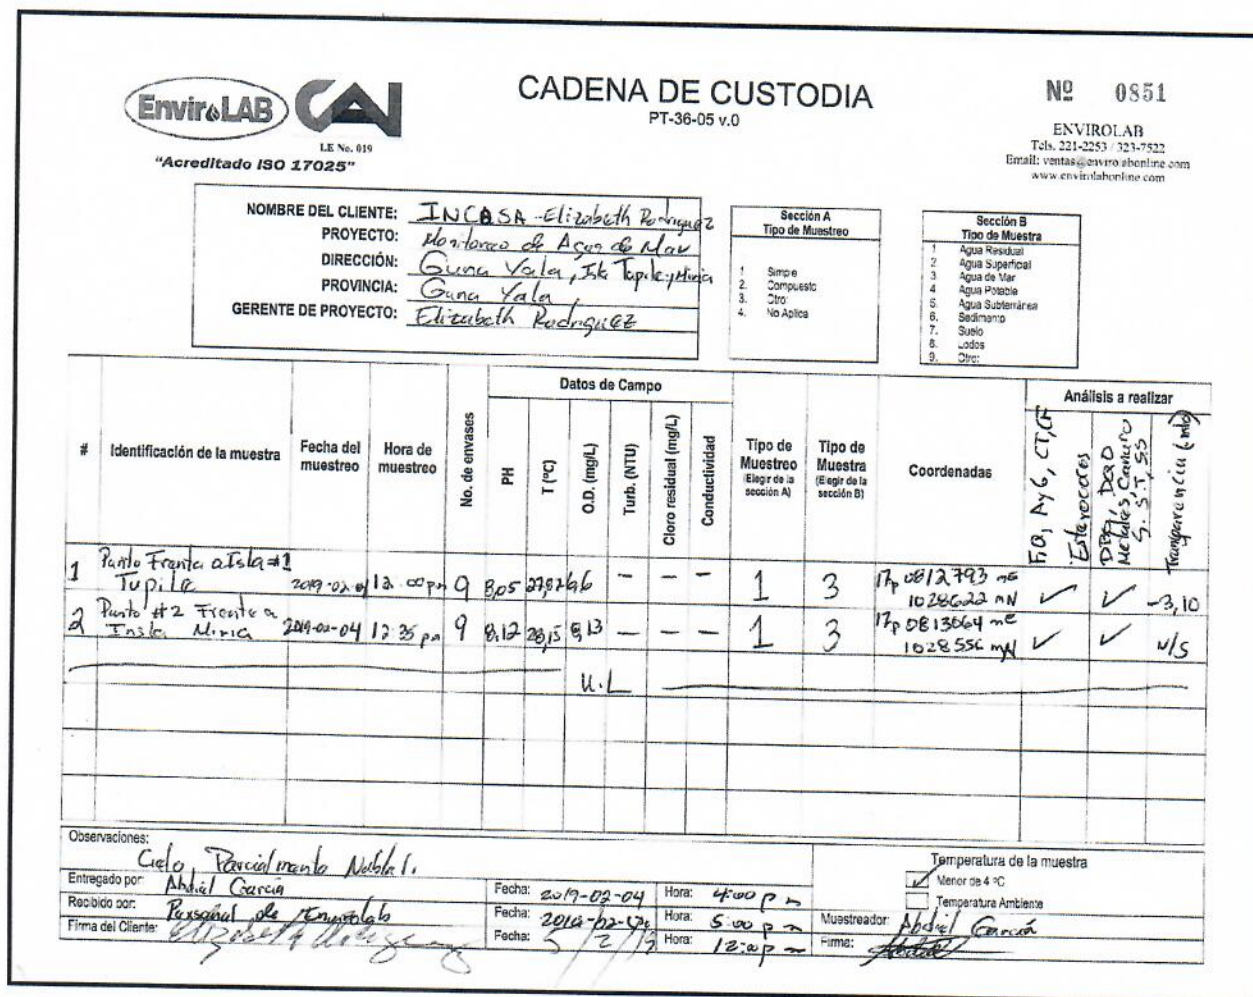 EnviroLAB
CAI
LE No. 019
"Acreditado ISO 17025"
CADENA DE CUSTODIA
PT-36-05 v.0
Nº 0851
ENVIROLAB
Tels. 221-2253 / 323-7522
Email: ventas@envirolabonline.com
www.envirolabonline.com
NOMBRE DEL CLIENTE: INCASA - Elizabeth Rodriguez
PROYECTO: Monitoreo de Agua de Mar
DIRECCIÓN: Guna Yala, Isla Tupile y Miria
PROVINCIA: Guna Yala,
GERENTE DE PROYECTO: Elizabeth Rodriguez
Sección A
Tipo de Muestreo
1 Simple
2. Compuesto
3. Otro:
4. No Aplica
Sección B
Tipo de Muestra
1 Agua Residual
2 Agua Superficial
3 Agua de Mar
4 Agua Potable
5. Agua Subterránea
6. Sedimento
7. Suelo
8. Lodos
9. Otro:
#
Identificación de la muestra
Fecha del muestreo
Hora de muestreo
No. de envases
Datos de Campo
PH
T (ºC)
O.D. (mg/L)
Turb. (NTU)
Cloro residual (mg/L)
Conductividad
Tipo de Muestreo (Elegir de la sección A)
Tipo de Muestra (Elegir de la sección B)
Coordenadas
Análisis a realizar
F.Q, AyG, CT, CF
Enterococos
DBO, DQO
Metales, Cianuro
S.T, SS
Transparencia (mts)
1 Punto Frente a Isla #1 Tupile 12:00 pm 9 8,05 27,82 6,6 - - - 1 3 17p 0812793 mE 1028622 mN ✓ ✓ -3,10
2 Punto #2 Frente a Insla Miria 2019-02-04 12:35 pm 9 8,12 28,15 6,13 - - - 1 3 17p 0813064 mE 1028556 mN ✓ ✓ N/S
U.L
Observaciones:
Cielo Parcialmente Nublado.
Entregado por: Abdiel García
Fecha: 2019-02-04
Hora: 4:00 pm
Recibido por: Personal de Envirolab
Fecha: 2019-02-04
Hora: 5:00 pm
Firma del Cliente:
Fecha: 5/2/19
Hora: 12:00 pm
Temperatura de la muestra
✓ Menor de 4 ºC
Temperatura Ambiente
Muestreador: Abdiel García
Firma: